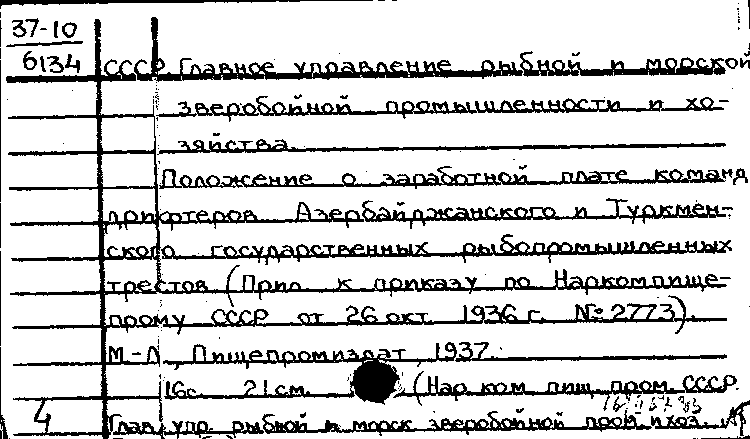 37-10
6134
СССР Главное управление рыбной и морской
зверобойной промышленности и хо-
зяйства
Положение о заработной плате команд
дрифтеров Азербайджанского и Туркмен-
ского государственных рыбопромышленных
трестов (Прил к приказу по Наркомпище-
прому СССР от 26 окт 1936 г. № 2773).
М.-Л., Пищепромиздат, 1937.
16с. 21см. (Нар ком пищ. пром. СССР.
4 Глав. упр. рыбной и морск зверобойной пром и хоз.